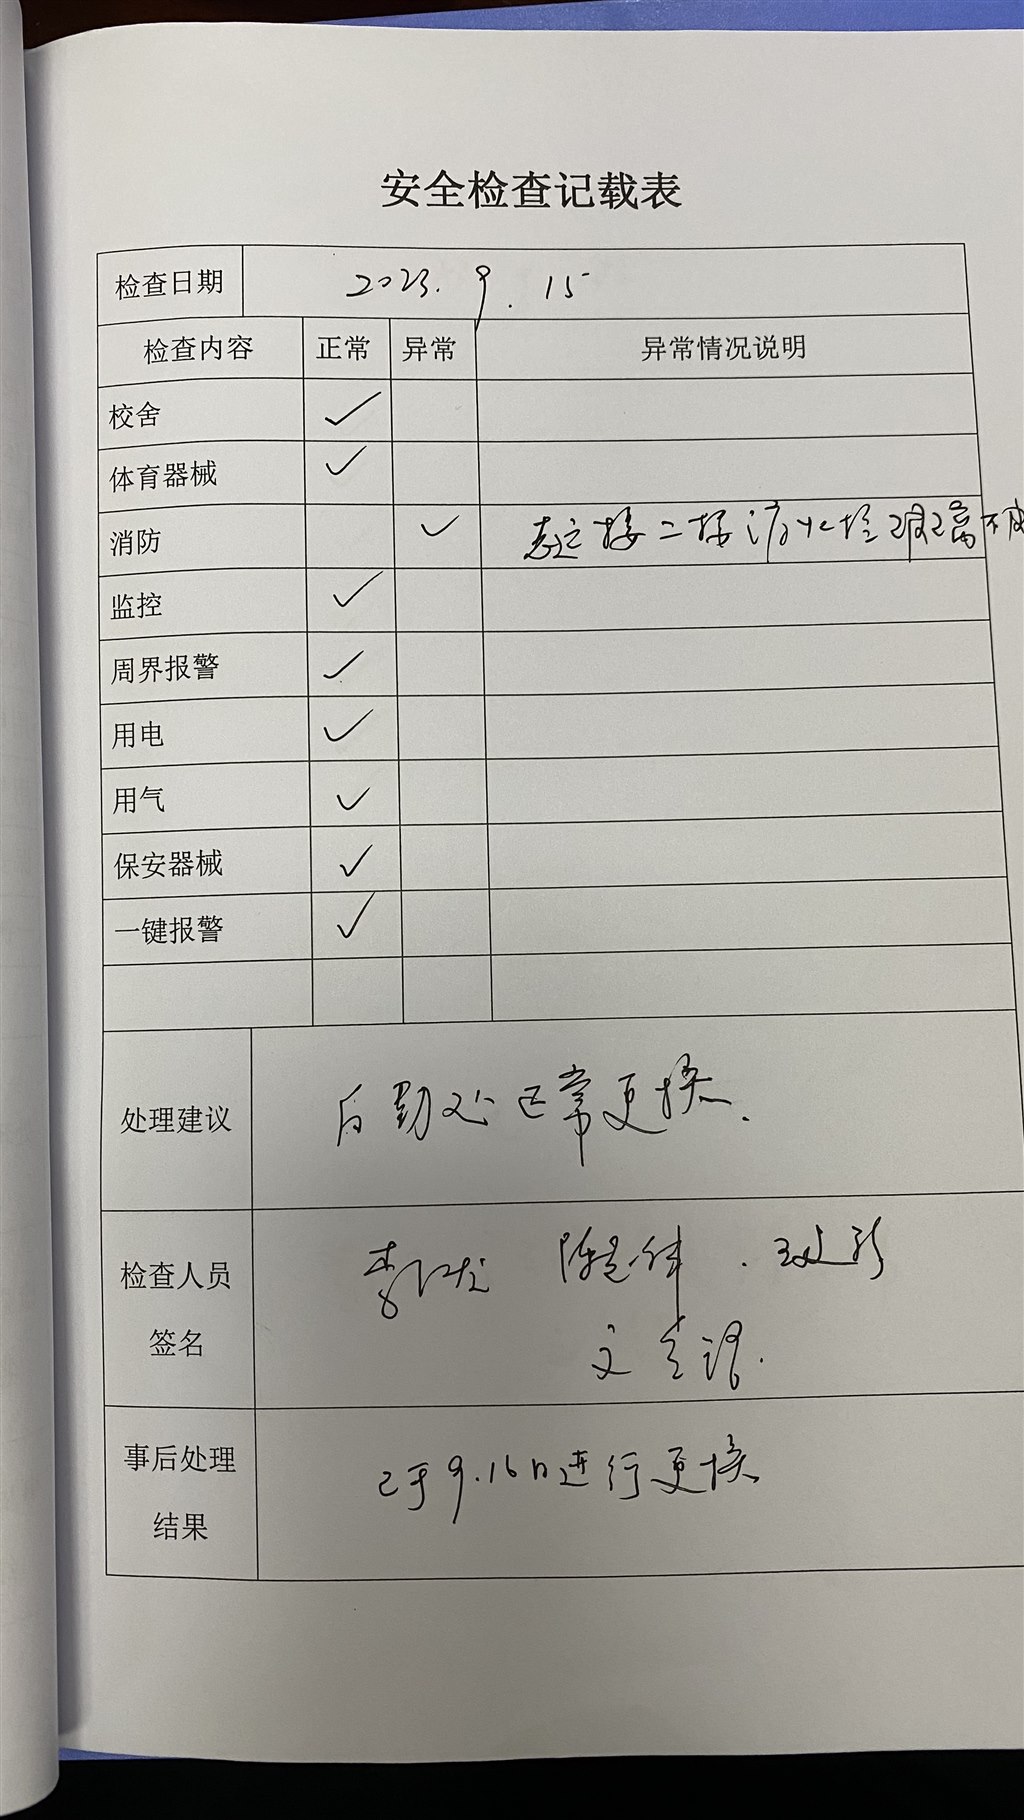 安全检查记载表
检查日期 2023.9.15
检查内容 正常 异常 异常情况说明
校舍 ✓
体育器械 ✓
消防 ✓ 楼二楼消火栓玻璃不
监控 ✓
周界报警 ✓
用电 ✓
用气 ✓
保安器械 ✓
一键报警 ✓
处理建议 后勤处正常更换.
检查人员
签名
事后处理
结果 已于9.16日进行更换